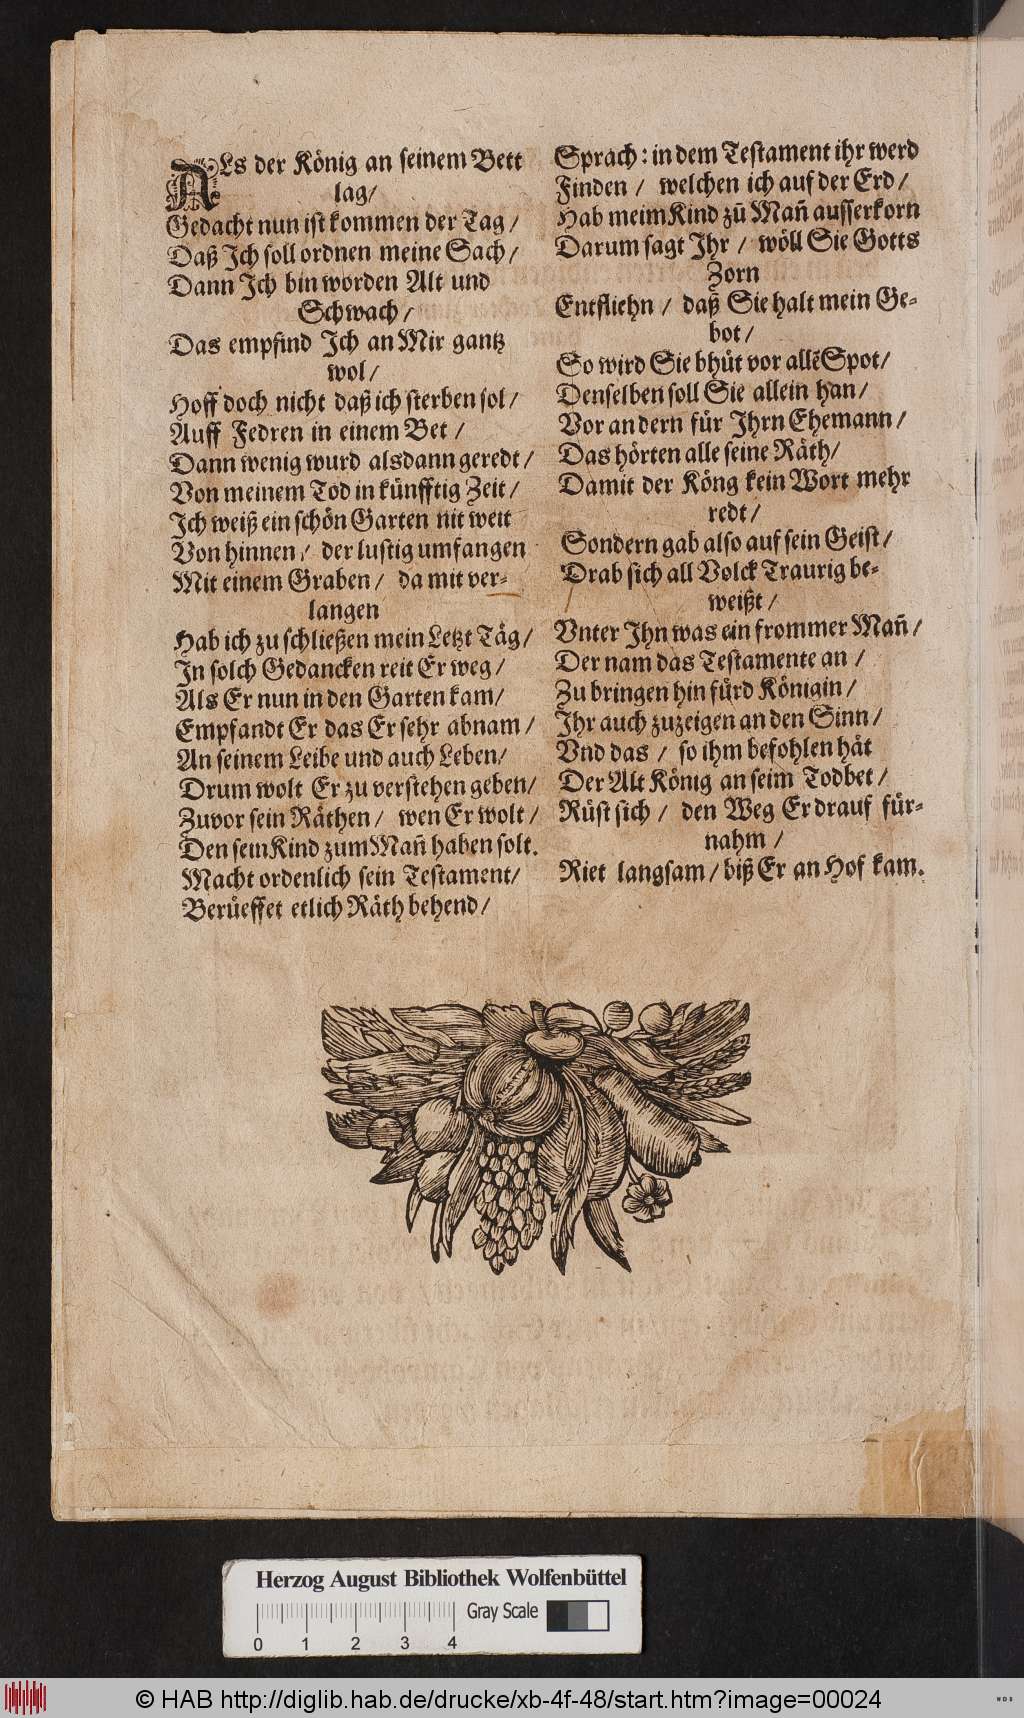 ALs der König an seinem Bett
lag/
Gedacht nun ist kommen der Tag/
Daß Ich soll ordnen meine Sach/
Dann Ich bin worden Alt und
Schwach/
Das empfind Ich an Mir gantz
wol/
Hoff doch nicht daß ich sterben sol/
Auff Fedren in einem Bet/
Dann wenig wurd alsdann geredt/
Von meinem Tod in künfftig Zeit/
Ich weiß ein schön Garten nit weit
Von hinnen/ der lustig umfangen
Mit einem Graben/ da mit ver-
langen
Hab ich zu schließen mein Letzt Täg/
In solch Gedancken reit Er weg/
Als Er nun in den Garten kam/
Empfandt Er das Er sehr abnam/
An seinem Leibe und auch Leben/
Drum wolt Er zu verstehen geben/
Zuvor sein Räthen/ wen Er wolt/
Den sein Kind zum Mañ haben solt.
Macht ordenlich sein Testament/
Berüeffet etlich Räth behend/
Sprach: in dem Testament ihr werd
Finden/ welchen ich auf der Erd/
Hab meim Kind zū Mañ ausserkorn
Darum sagt Ihr/ wöll Sie Gotts
Zorn
Entfliehn/ daß Sie halt mein Ge-
bot/
So wird Sie bhüt vor allē Spot/
Denselben soll Sie allein han/
Vor andern für Ihrn Ehemann/
Das hörten alle seine Räth/
Damit der Köng kein Wort mehr
redt/
Sondern gab also auf sein Geist/
Drab sich all Volck Traurig be-
weißt/
Vnter Ihn was ein frommer Mañ/
Der nam das Testamente an/
Zu bringen hin fürd Königin/
Ihr auch zuzeigen an den Sinn/
Vnd das/ so ihm befohlen hät
Der Alt König an seim Todbet/
Rüst sich/ den Weg Er drauf für-
nahm/
Riet langsam/ biß Er an Hof kam.
Herzog August Bibliothek Wolfenbüttel
Gray Scale
0 1 2 3 4
© HAB http://diglib.hab.de/drucke/xb-4f-48/start.htm?image=00024